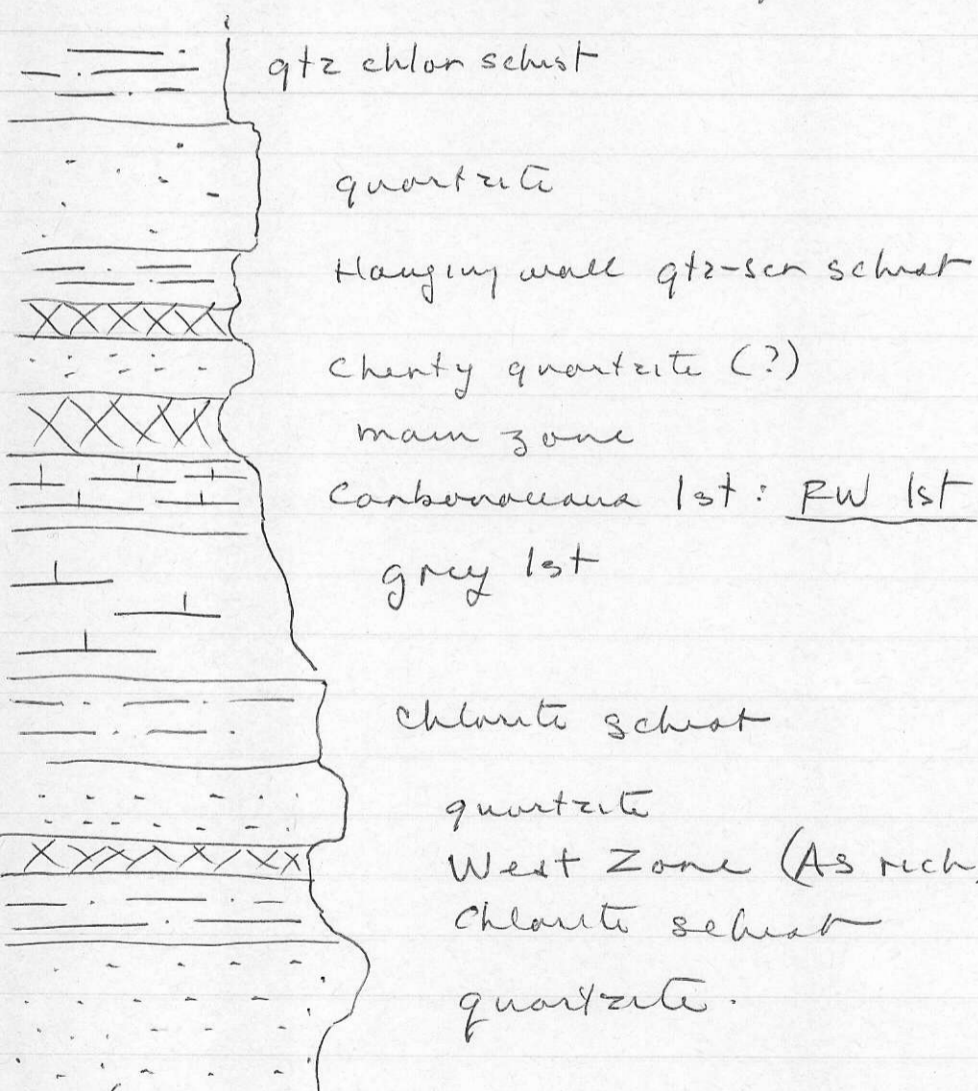 qtz chlor schist
quartzite
Hanging wall qtz-ser schist
Cherty quartzite (?)
main zone
Carbonaceous lst: FW lst
grey lst
chlorite schist
quartzite
West Zone (As rich)
Chlorite schist
quartzite.